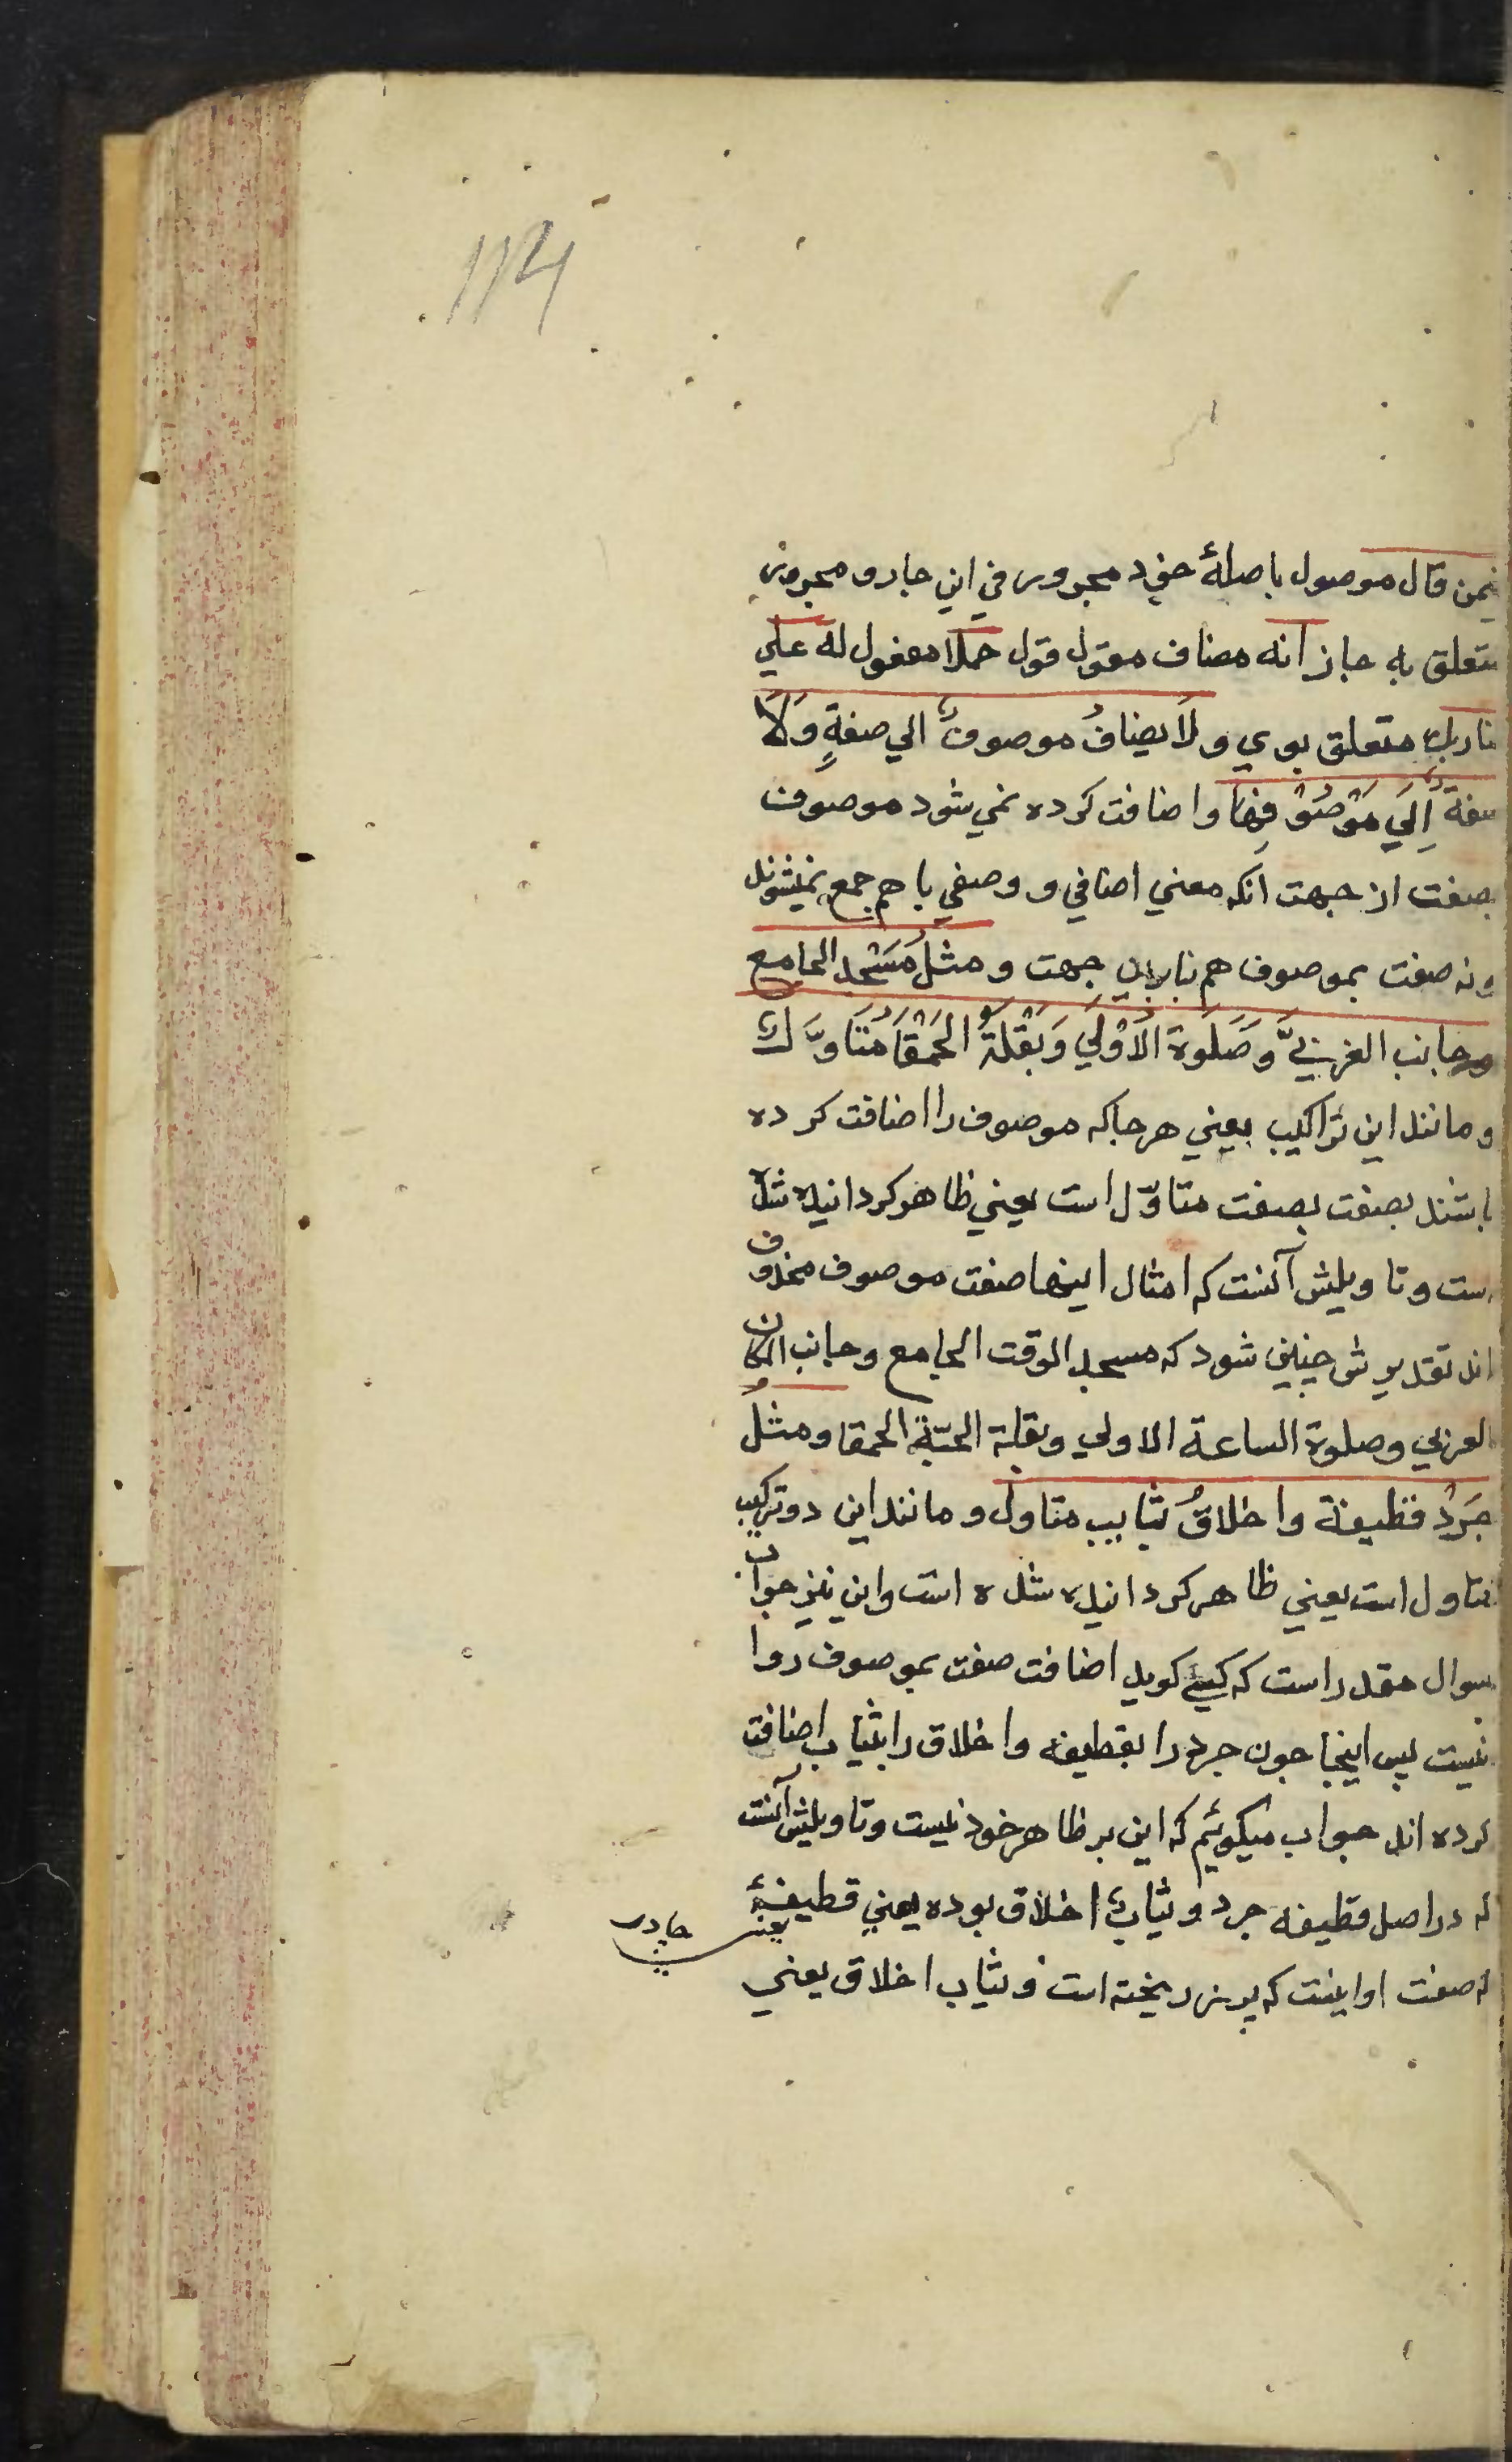 114
فیمن قال موصول باصلهٔ خود مجرور في این جار و مجرور
متعلق به جاز انه مضاف مقول قول حملا مفعول له علي
ضاربك متعلق بوي ولا یضافُ موصوفٌ الي صفةٍ ولا
صفةٌ اِلَي مَوْصُوْفِها واضافت کرده نمي شود موصوف
بصفت از جهت انکه معني اضافي و وصفي با هم جمع نمیشوند
ونه صفت بموصوف هم بنابراین جهت ومثلُ مَسْجد الجامع
وجانب الغربيِّ وصَلَوة الاُوْلَي وَبَقْلَة الحَمْقَا مُتَاوَّلٌ
ومانند این تراکیب یعني هر جا که موصوف را اضافت کرده
باشند بصفت بصفت متاوّل است یعني ظاهر کردانیده شده
است وتاویلش آنست که امثال اینها صفت موصوف محذوف
اند تقدیرش چنین شود که مسجد الوقت الجامع وجانب المکان
الغربي وصلوة الساعة الاولي وبقلة الحبّة الحمقا ومثلُ
جَرْدُ قطیفة واخلاقُ ثیابٍ متاول ومانند این دو ترکیب
متاول است یعني ظاهر کردانیده شده است واین نیز جواب
سوال مقدر است که کسي کوید اضافت صفت بموصوف روا
نیست پس اینجا چون جرد را بقطیفه واخلاق را بثیاب اضافت
کرده اند جواب میکوئیم که این بر ظاهر خود نیست وتاویلش آنست
که در اصل قطیفه جرد وثیابٌ اخلاق بوده یعني قطیفهٔ
یعني چادر
که صفت او اینست که پرز ریخته است وثیاب اخلاق یعني